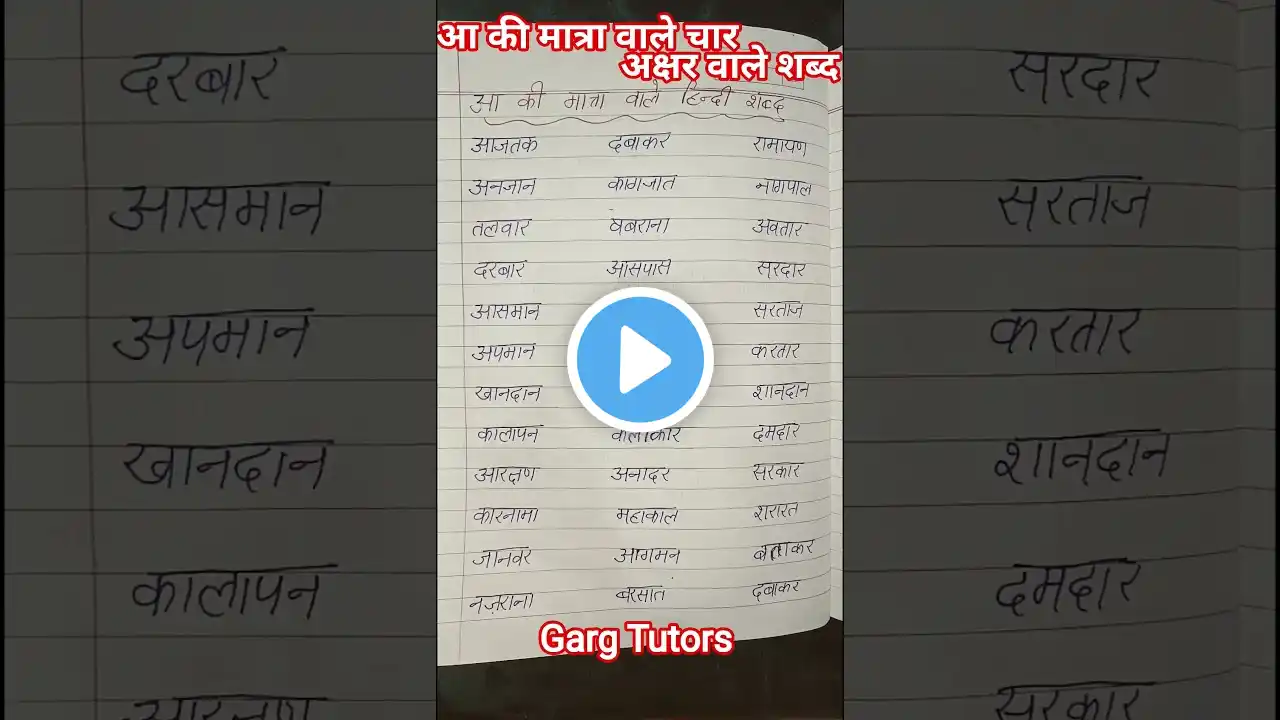 आ की मात्रा वाले चार
अक्षर वाले शब्द
आ की मात्रा वाले हिन्दी शब्द
आजतक दबाकर रामायण
अनजान कागजात नागपाल
तलवार घबराना अवतार
दरबार आसपास सरदार
आसमान सरताज
अपमान करतार
खानदान शानदान
कालापन कलाकार दमदार
आरक्षण अनादर सरकार
कारनामा महाकाल शरारत
जानवर आगमन बताकर
नज़राना बरसात दबाकर
Garg Tutors
दरबार सरदार
आसमान सरताज
अपमान करतार
खानदान शानदान
कालापन दमदार
आरक्षण सरकार